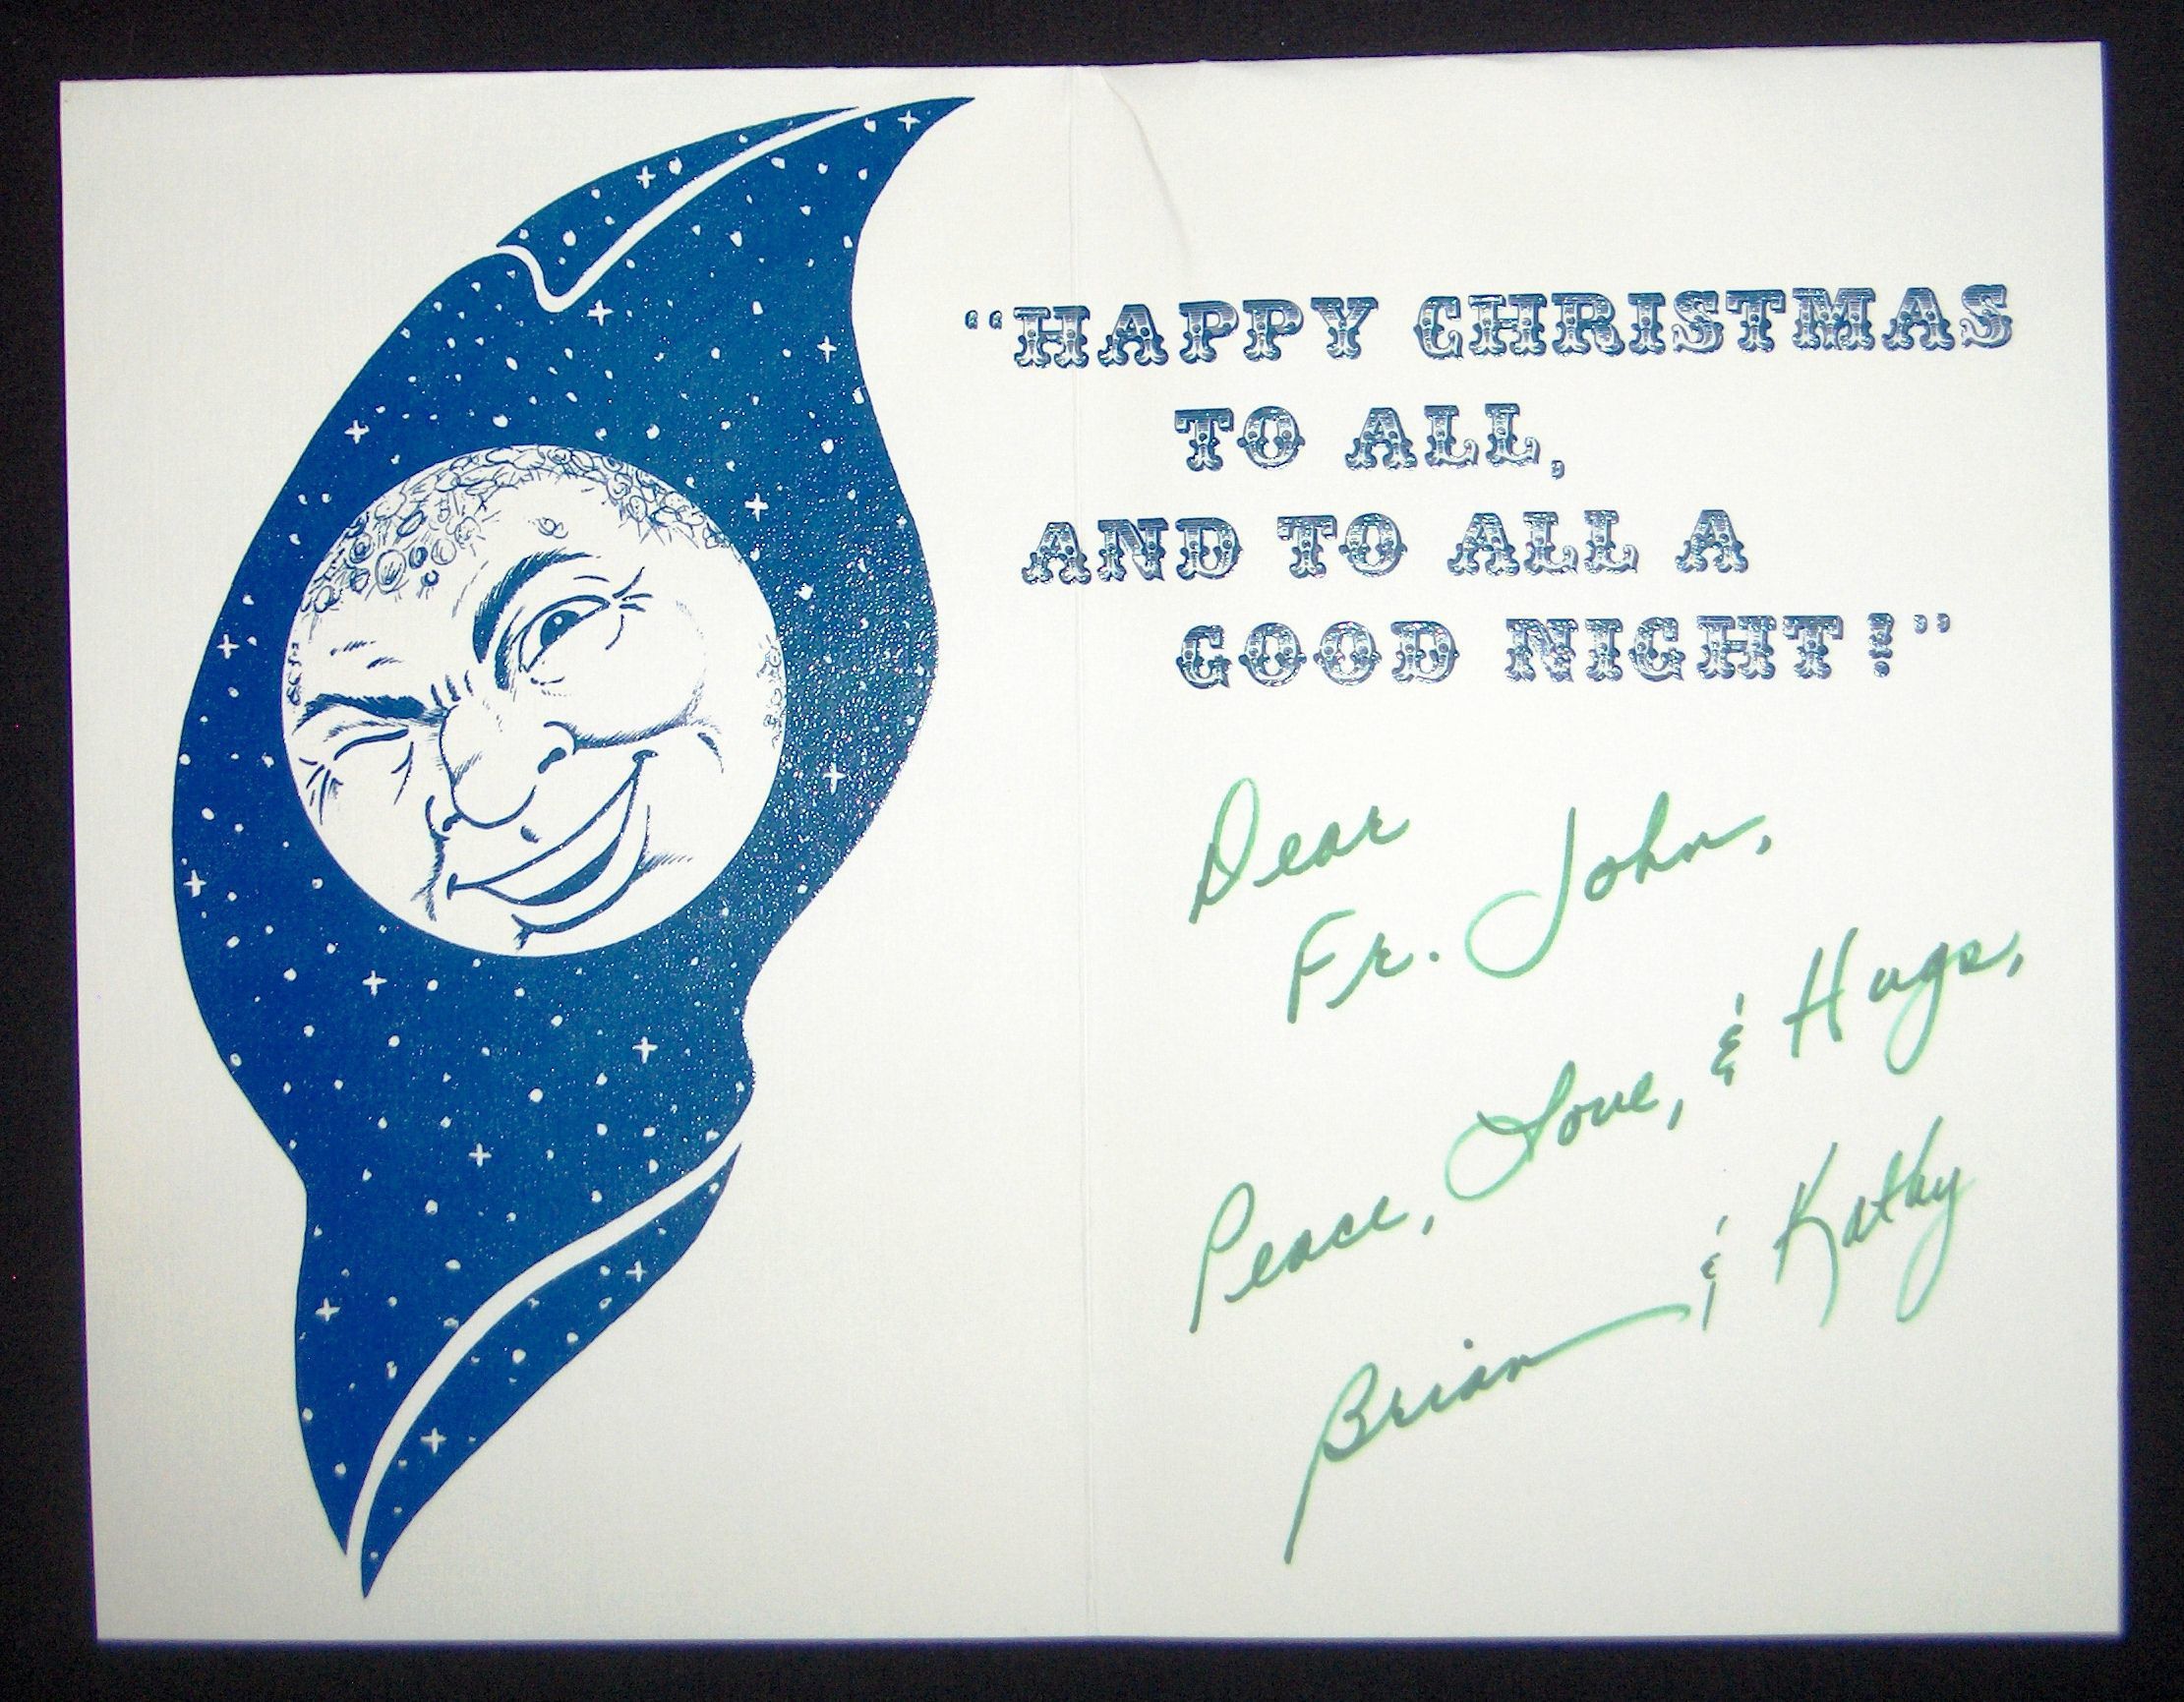 “HAPPY CHRISTMAS
TO ALL,
AND TO ALL A
GOOD NIGHT!”
Dear
Fr. John,
Peace, Love, & Hugs,
Brian & Kathy